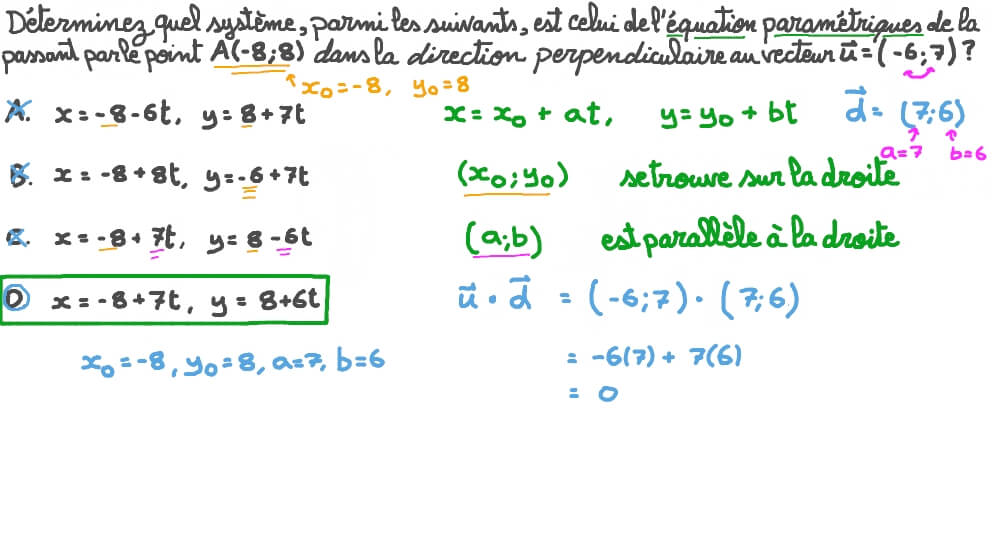 Déterminez quel système, parmi les suivants, est celui de l'équation paramétriques de la
passant par le point A(-8;8) dans la direction perpendiculaire au vecteur u⃗ = (-6;7) ?
x₀ = -8, y₀ = 8
A. x = -8 - 6t, y = 8 + 7t
x = x₀ + at, y = y₀ + bt
d⃗ = (7;6)
a = 7 b = 6
B. x = -8 + 8t, y = -6 + 7t
(x₀; y₀) se trouve sur la droite
C. x = -8 + 7t, y = 8 - 6t
(a; b) est parallèle à la droite
D x = -8 + 7t, y = 8 + 6t
u⃗ · d⃗ = (-6; 7) · (7; 6)
x₀ = -8, y₀ = 8, a = 7, b = 6
= -6(7) + 7(6)
= 0